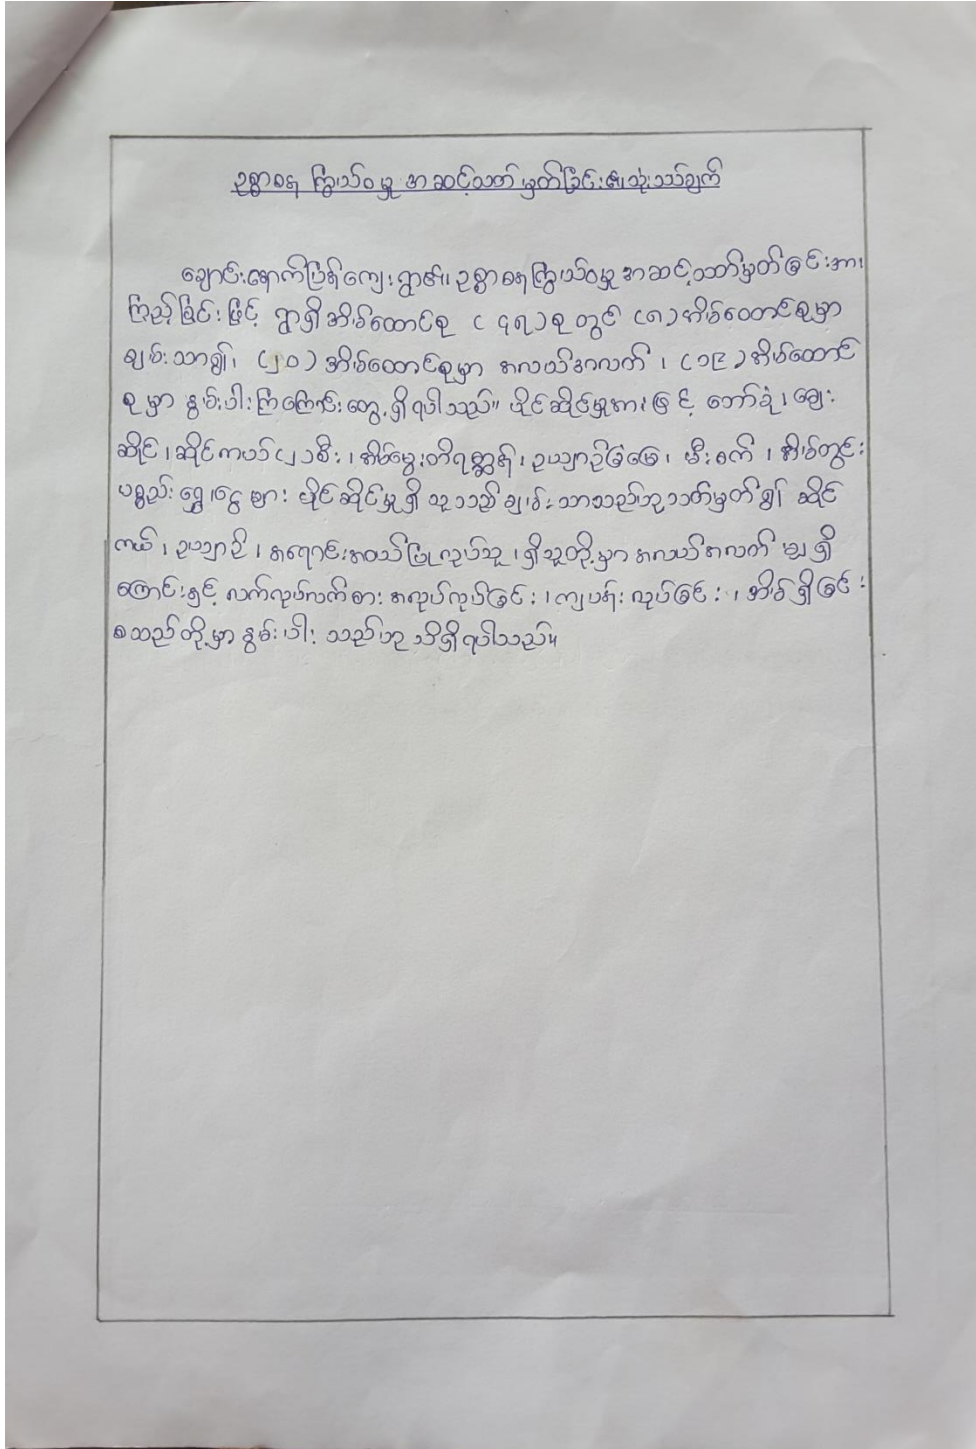 ဥစ္စာဓန ကြွယ်ဝမှု အဆင့်သတ်မှတ်ခြင်း၏သုံးသပ်ချက်
ချောင်းနောက်ပြန်ကျေးရွာ၏ ဥစ္စာဓနကြွယ်ဝမှုအဆင့်သတ်မှတ်ခြင်းအား
ကြည့်ခြင်းဖြင့် ရွာရှိအိမ်ထောင်စု ( ၄၇ ) စုတွင် (၈) အိမ်ထောင်စုမှာ
ချမ်းသာ၍၊ (၂၀) အိမ်ထောင်စုမှာ အလယ်အလတ်၊ (၁၉) အိမ်ထောင်
စုမှာ နွမ်းပါးကြကြောင်းတွေ့ရှိရပါသည်။ ပိုင်ဆိုင်မှုအားဖြင့် ဘော်ဒုံ၊ ဈေး
ဆိုင်၊ ဆိုင်ကယ်(၂)စီး၊ အိမ်မွေးတိရစ္ဆာန်၊ ဥယျာဉ်ခြံမြေ၊ မီးစက်၊ အိမ်တွင်း
ပစ္စည်း ရွှေ၊ငွေ များ ပိုင်ဆိုင်မှုရှိ သူသည် ချမ်းသာသည်ဟုသတ်မှတ်၍ ဆိုင်
ကယ်၊ ဥယျာဉ်၊ အရောင်းအဝယ်ပြုလုပ်သူ၊ ရှိသူတို့မှာ အလယ်အလတ် မျှရှိ
ကြောင်းနှင့် လက်လုပ်လက်စား အလုပ်လုပ်ခြင်း၊ ကျပန်းလုပ်ခြင်း၊ အိမ်ရှိခြင်း
စသည်တို့မှာ နွမ်းပါး သည်ဟု သိရှိရပါသည်။